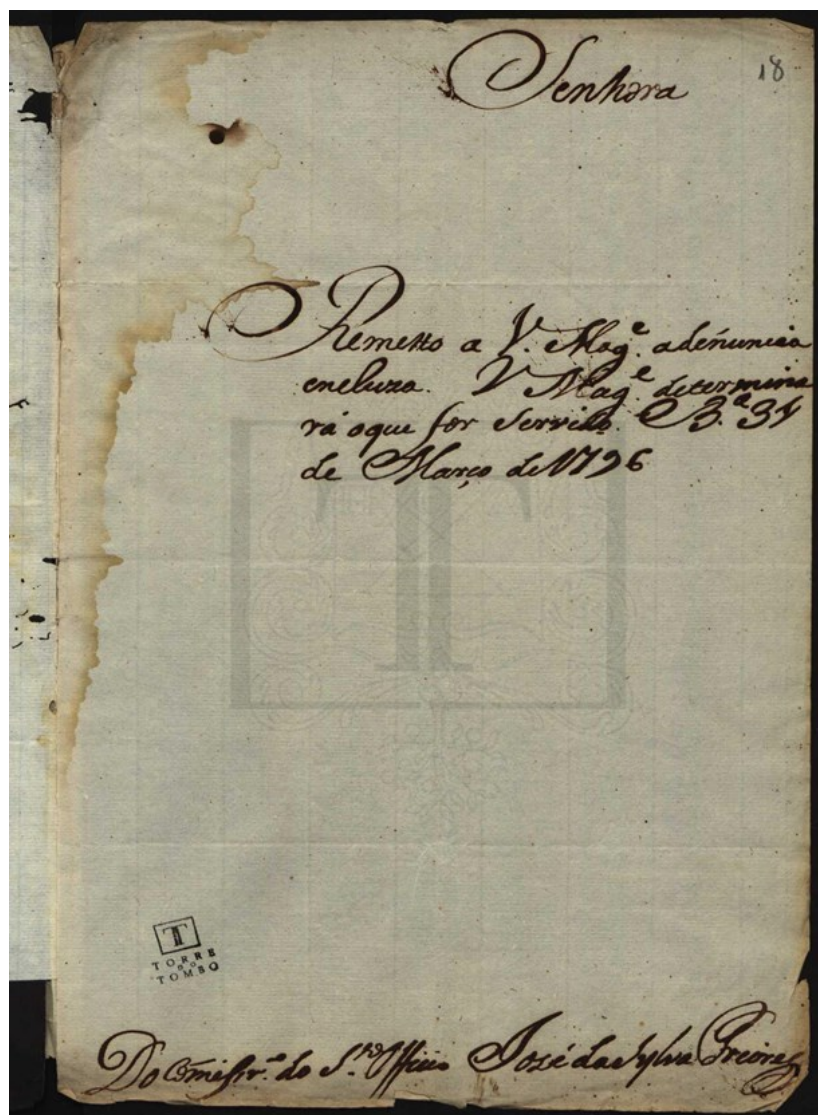 Senhora
18
Remetto a V. Mag.e adenuncia
encluza. V Mag.e determina
rá oque for Servido. B.a 31
de Março de 1796
TORRE
DO
TOMBO
Do Comissr.o do S.to Officio José da Sylva